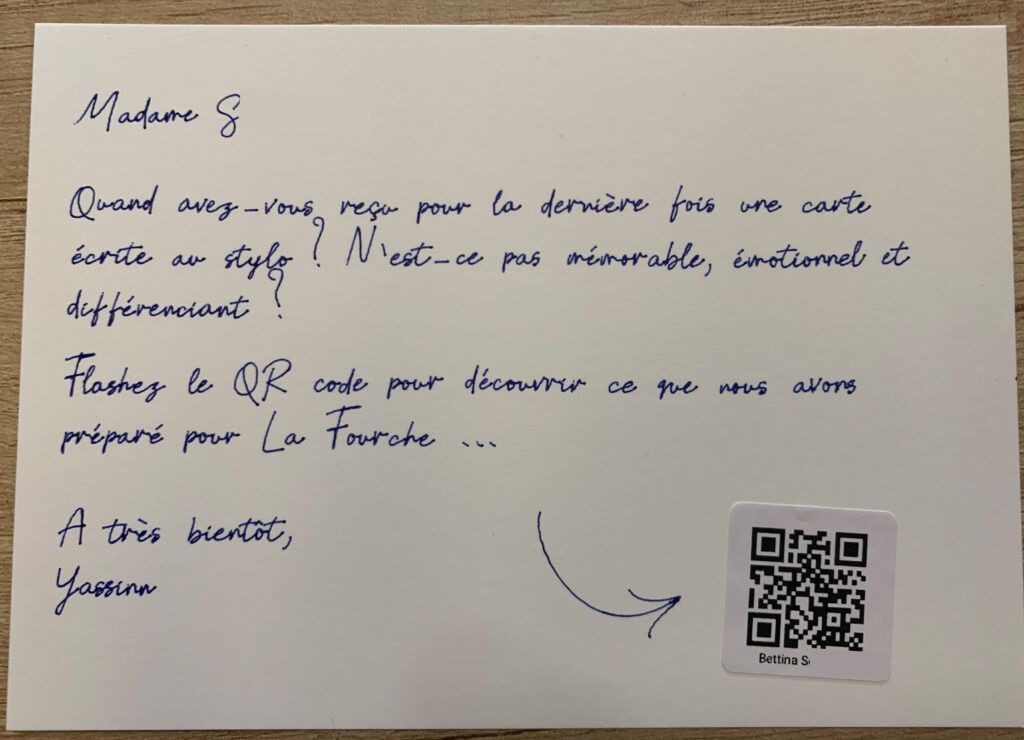 Madame S
Quand avez-vous reçu pour la dernière fois une carte
écrite au stylo ? N'est-ce pas mémorable, émotionnel et
différenciant ?
Flashez le QR code pour découvrir ce que nous avons
préparé pour La Fourche ...
A très bientôt,
Yassinn
Bettina S